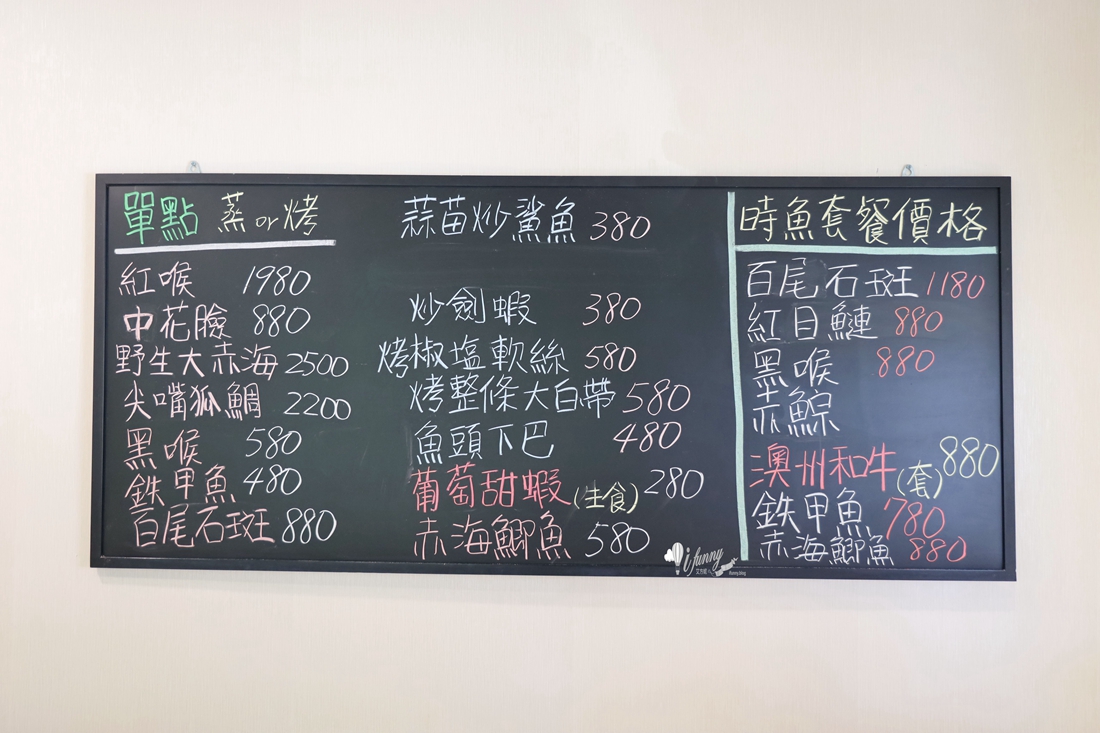 單點 蒸 or 烤
紅喉 1980
中花臉 880
野生大赤海 2500
尖嘴狐鯛 2200
黑喉 580
鉄甲魚 480
百尾石斑 880
蒜苗炒鯊魚 380
炒劍蝦 380
烤椒塩軟絲 580
烤整條大白帶 580
魚頭下巴 480
葡萄甜蝦(生食) 280
赤海鯽魚 580
時魚套餐價格
百尾石斑 1180
紅目鰱 880
黑喉 880
赤鯮
澳州和牛(套) 880
鉄甲魚 780
赤海鯽魚 880
i funny